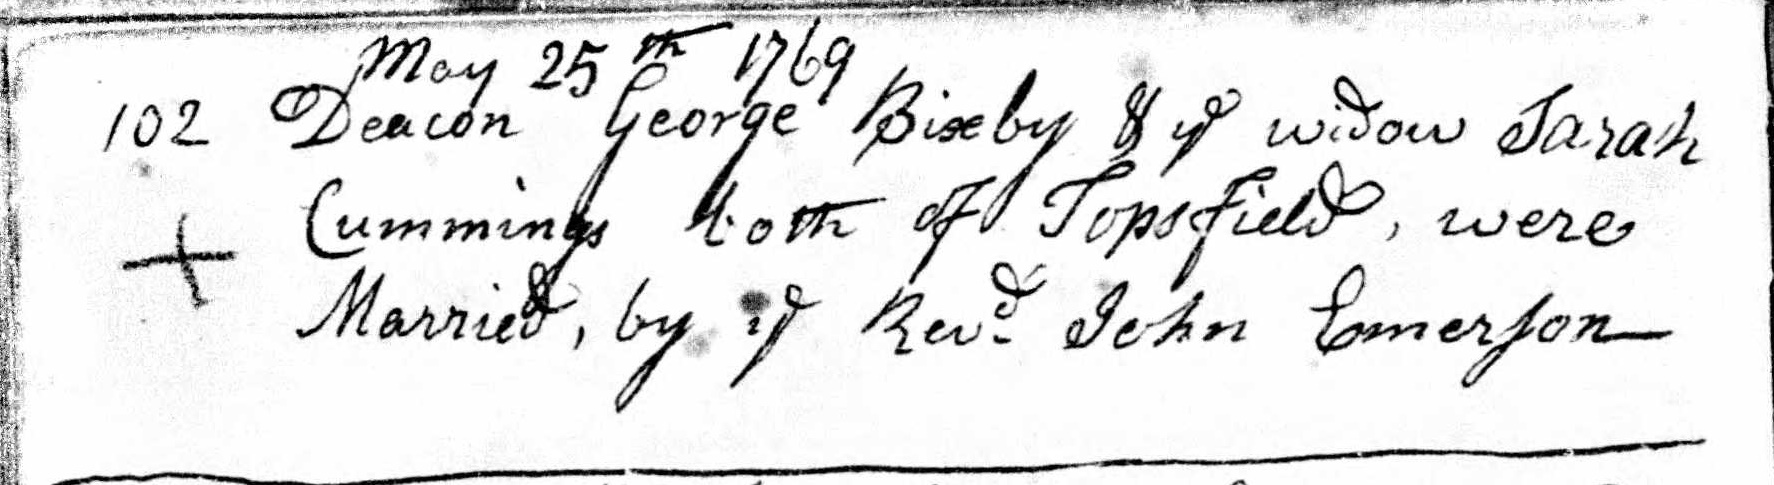 May 25th 1769
102 Deacon George Bixby & ye widow Sarah
Cummings both of Topsfield, were
Married, by ye Revd. John Emerson